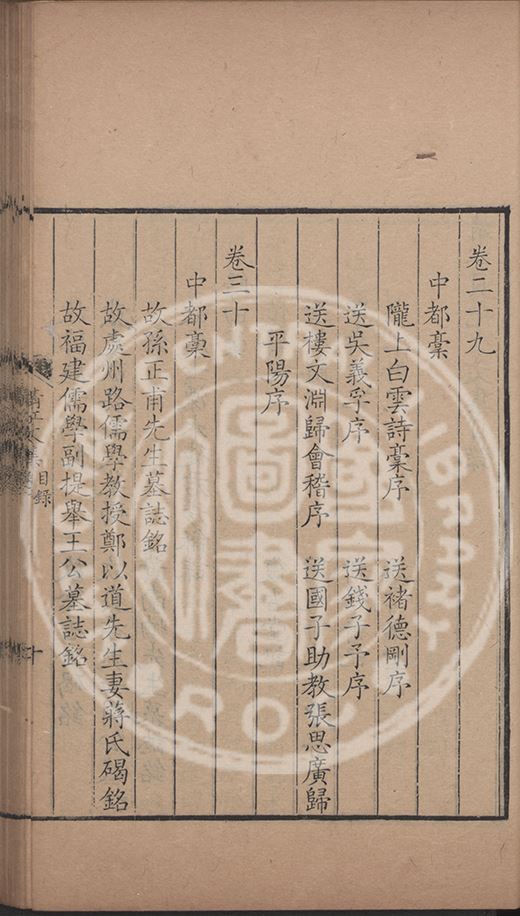 卷二十九
中都稾
隴上白雲詩稾序　送褚德剛序
送吳義孚序　送錢子予序
送樓文淵歸會稽序　送國子助教張思廣歸
平陽序
卷三十
中都稾
故孫正甫先生墓誌銘
故處州路儒學教授鄭以道先生妻蔣氏碣銘
故福建儒學副提舉王公墓誌銘
目録
十